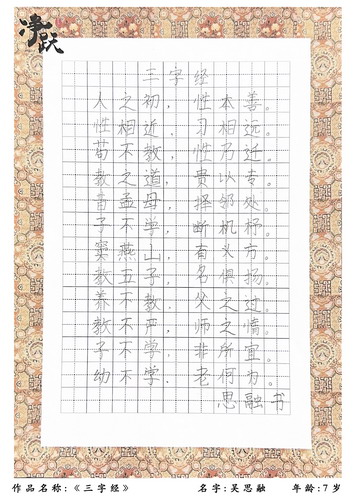 净跃
三字经
人之初，性本善。
性相近，习相远。
苟不教，性乃迁。
教之道，贵以专。
昔孟母，择邻处。
子不学，断机杼。
窦燕山，有义方。
教五子，名俱扬。
养不教，父之过。
教不严，师之惰。
子不学，非所宜。
幼不学，老何为。
思融书
作品名称:《三字经》 名字:吴思融 年龄:7岁